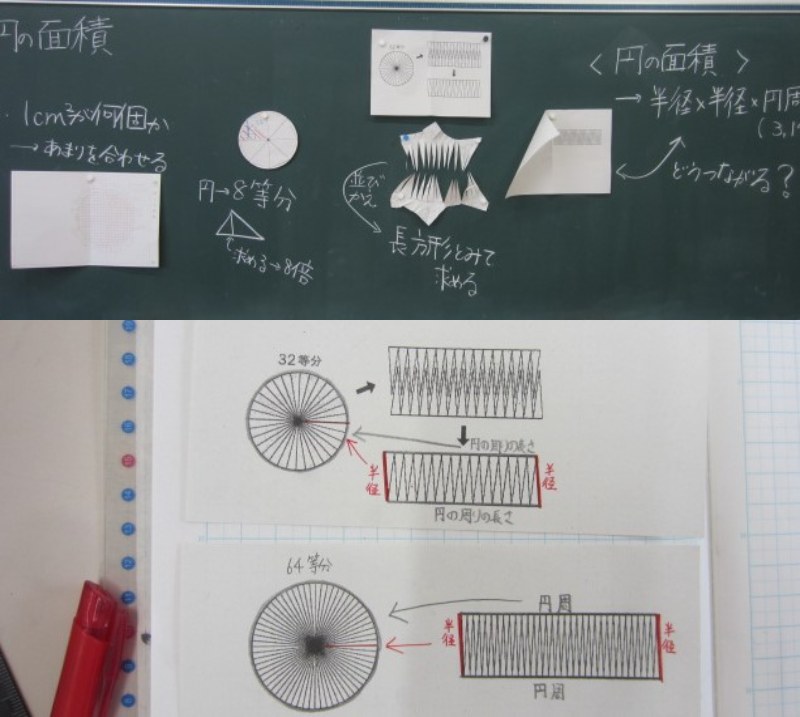 円の面積
1cm²が何個か
→あまりを合わせる
円→8等分
求める→8倍
並び
かえ
長方形とみて
求める
〈円の面積〉
→半径×半径×円周
(3.1
どうつながる？
32等分
円の周りの長さ
半径
半径
円の周りの長さ
64等分
円周
半径
半径
円周